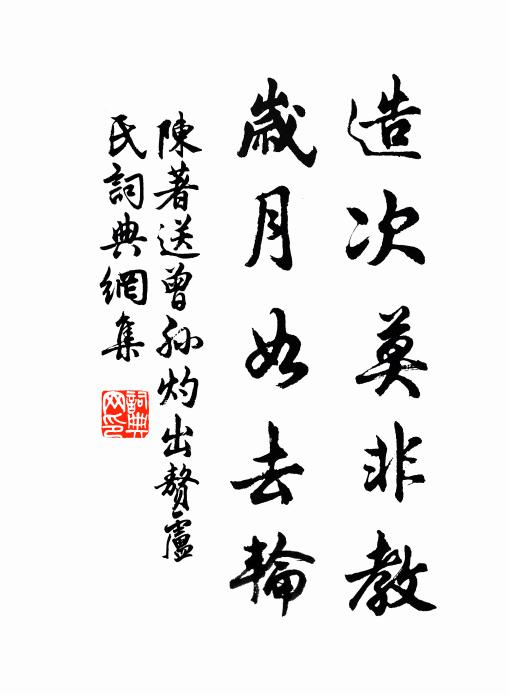 造次莫非教
歲月如去輪
陳著送曾孫灼出贅盧
氏詞典網集
詞典網印